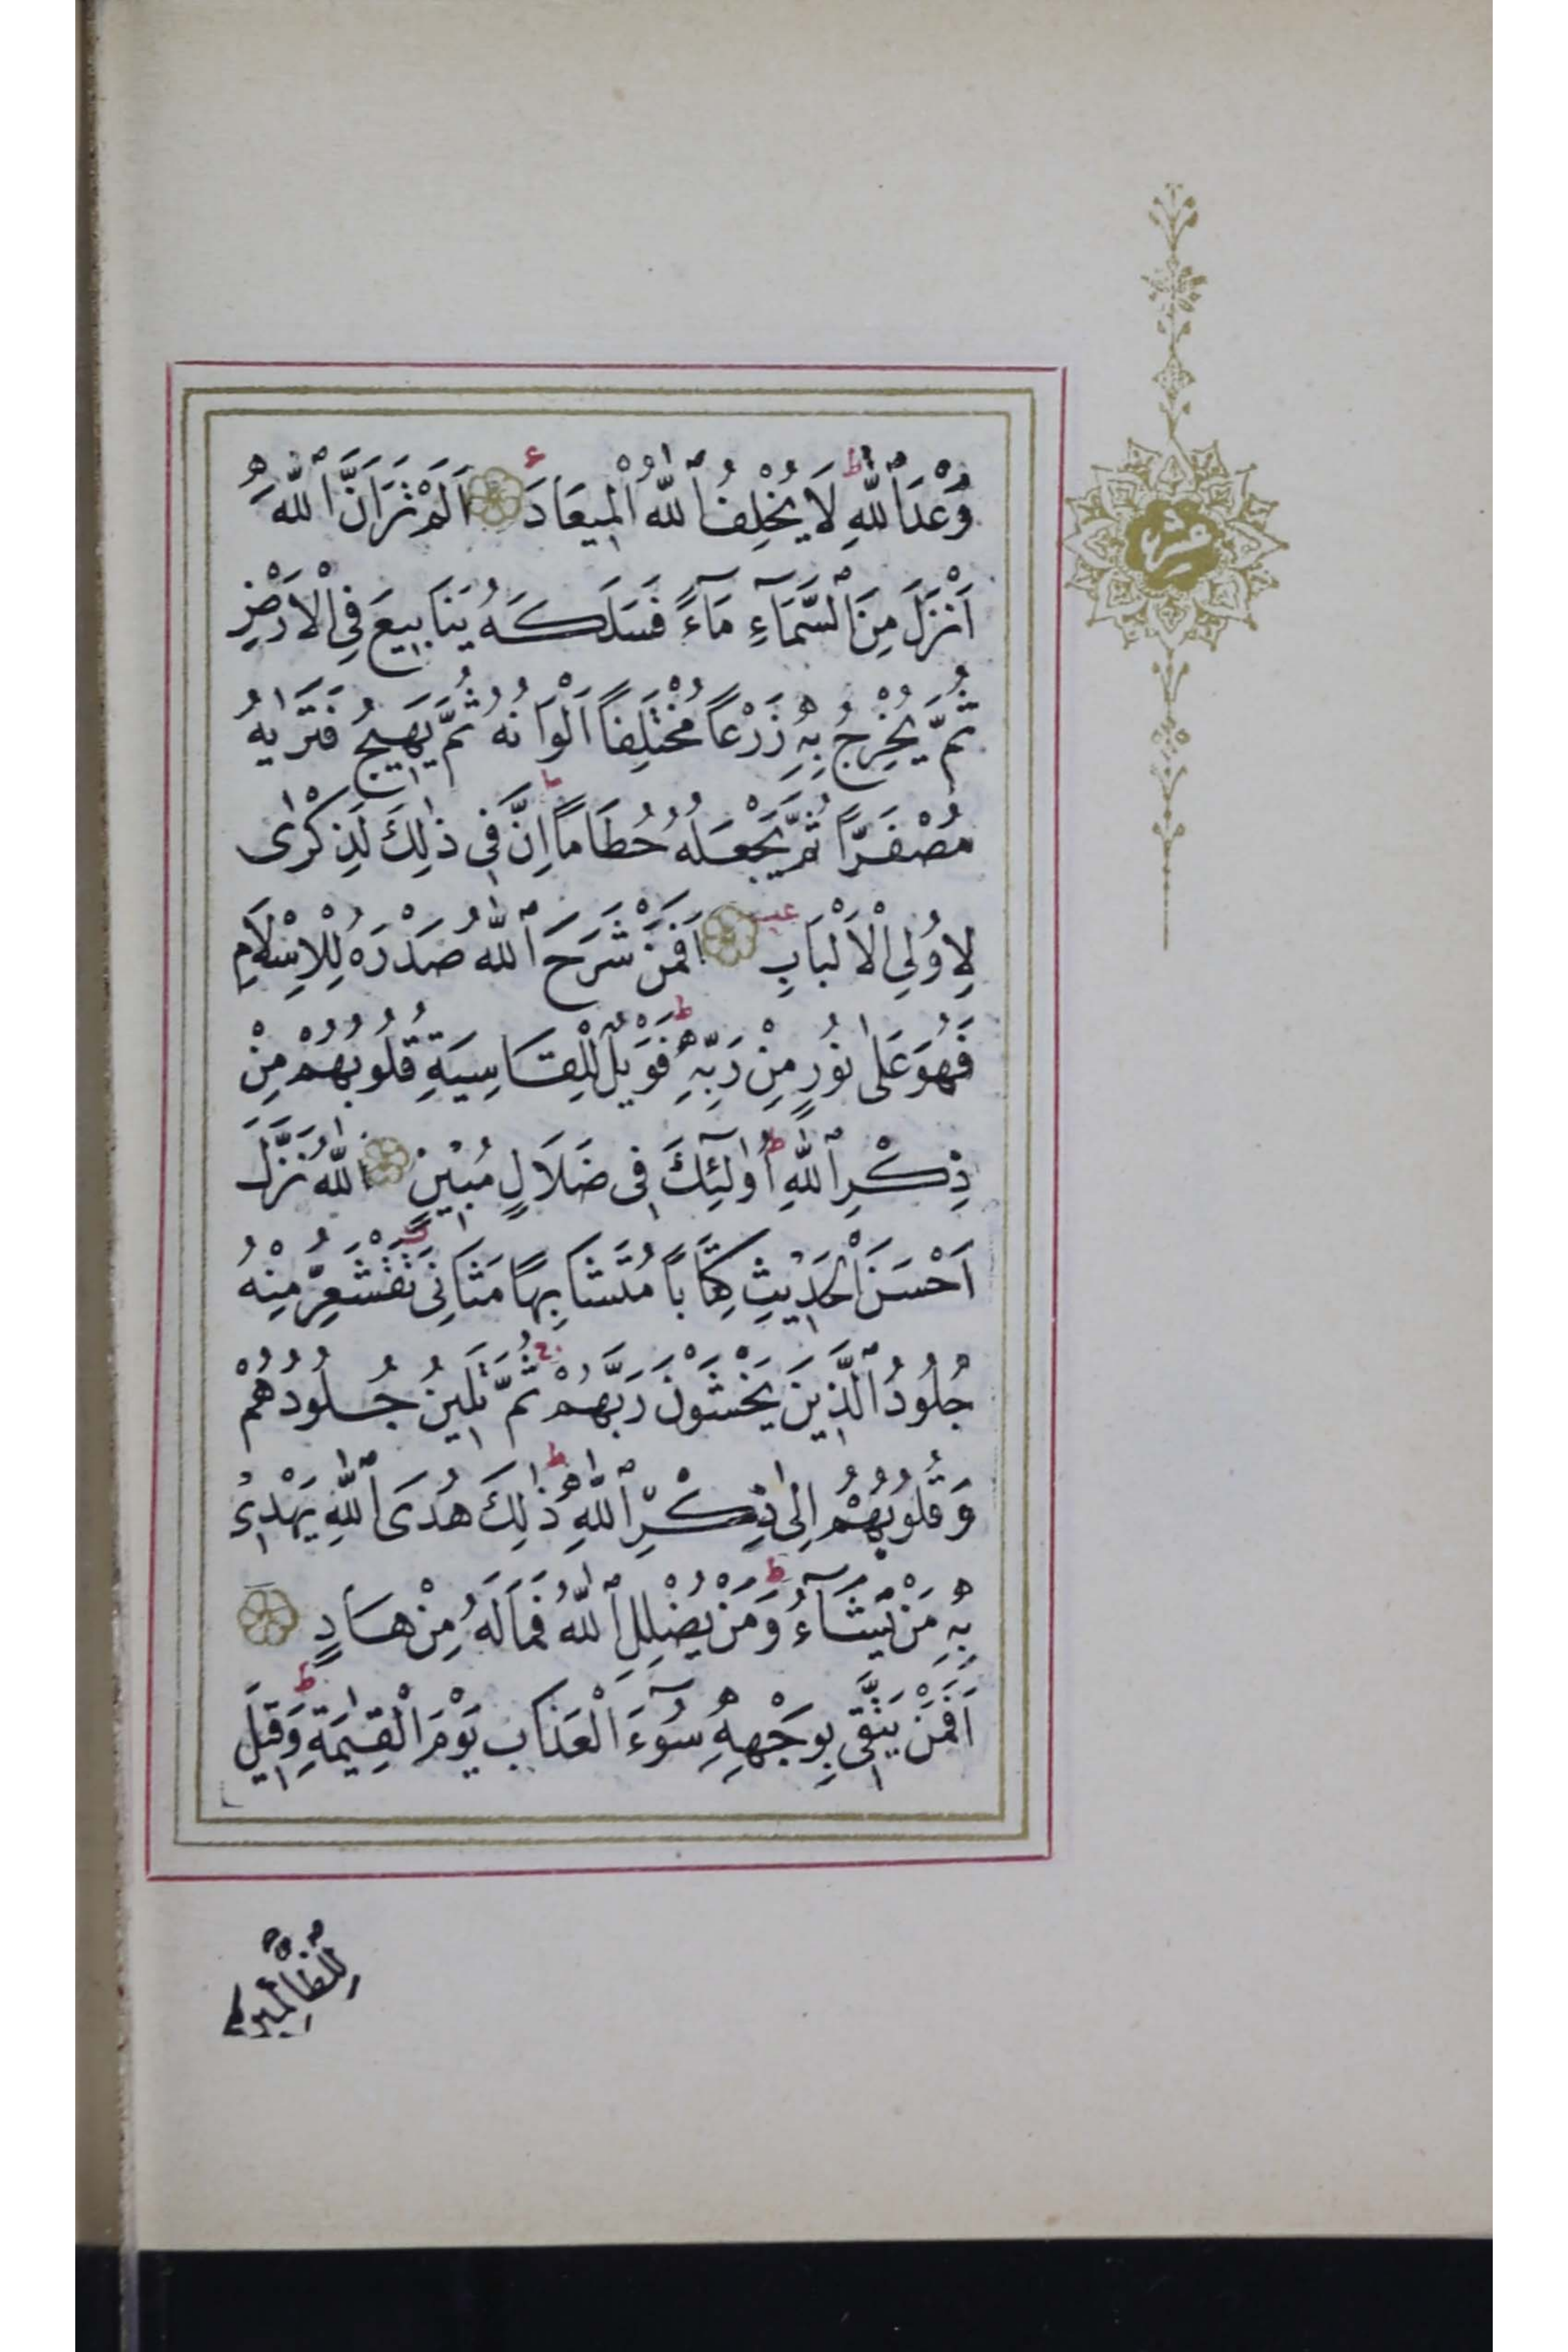 وَعْدَ ٱللّٰهِ ط لَا يُخْلِفُ ٱللّٰهُ الْمٖيعَادَ ء اَلَمْ تَرَ اَنَّ ٱللّٰهَ
اَنْزَلَ مِنَ ٱلسَّمَآءِ مَآءً فَسَلَكَهُ يَنَابٖيعَ فِي الْاَرْضِ
ثُمَّ يُخْرِجُ بِهٖ زَرْعاً مُخْتَلِفاً اَلْوَانُهُ ثُمَّ يَهٖيجُ فَتَرٰيهُ
مُصْفَرًّا ثُمَّ يَجْعَلُهُ حُطَاماً ط اِنَّ فٖي ذٰلِكَ لَذِكْرٰى
لِاُولِي الْاَلْبَابِ عب اَفَمَنْ شَرَحَ ٱللّٰهُ صَدْرَهُ لِلْاِسْلَامِ
فَهُوَ عَلٰى نُورٍ مِنْ رَبِّهٖ ط فَوَيْلٌ لِلْقَاسِيَةِ قُلُوبُهُمْ مِنْ
ذِكْرِ ٱللّٰهِ ط اُولٰٓئِكَ فٖى ضَلَالٍ مُبٖينٍ ٱللّٰهُ نَزَّلَ
اَحْسَنَ الْحَدٖيثِ كِتَاباً مُتَشَابِهًا مَثَانِىَ تَقْشَعِرُّ مِنْهُ
جُلُودُ ٱلَّذٖينَ يَخْشَوْنَ رَبَّهُمْ ج ثُمَّ تَلٖينُ جُلُودُهُمْ
وَقُلُوبُهُمْ اِلٰى ذِكْرِ ٱللّٰهِ ط ذٰلِكَ هُدَى ٱللّٰهِ يَهْدٖى
بِهٖ مَنْ يَشَآءُ ط وَمَنْ يُضْلِلِ ٱللّٰهُ فَمَا لَهُ مِنْ هَادٍ
اَفَمَنْ يَتَّقٖى بِوَجْهِهٖ سُوٓءَ الْعَذَابِ يَوْمَ الْقِيٰمَةِ ط وَقٖيلَ
لِلظَّالِمٖينَ